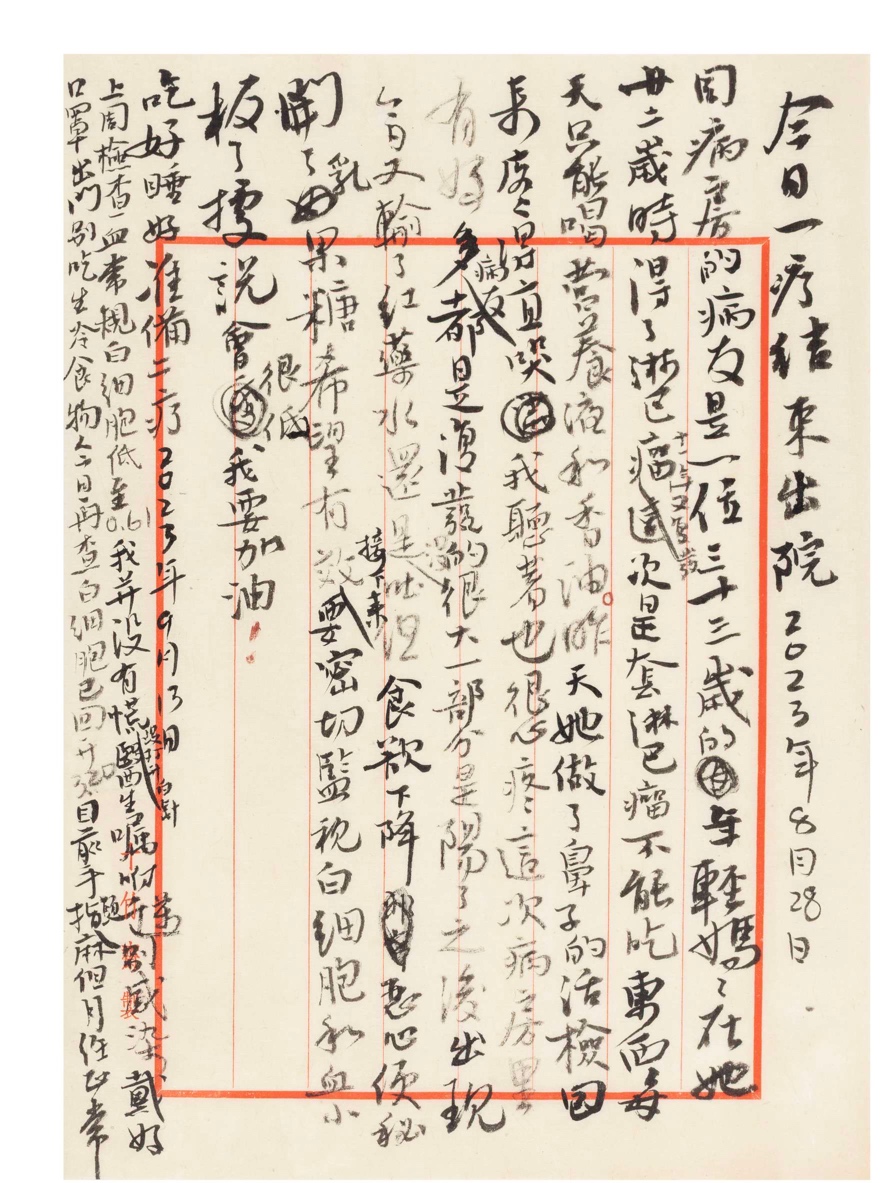 今日一疗结束出院 2023年8月28日
同病房的病友是一位三十三歲的年輕媽媽在她
廿二歲時得了淋巴瘤這次是套淋巴瘤不能吃東西每
天只能喝营养液和香油昨天她做了鼻子的活檢回
來疼得直哭我聽着也很心疼這次病房里
有好多病友都是復發的很大一部分是陽了之後出現
今日又輸了紅藥水還是吐泹食欲下降恶心便秘
開了乳果糖希望有效接下来要密切監視白细胞和血小
板了據説會很低我要加油!
吃好睡好准備二疗 2023年9月13日
上周檢查血常規白细胞低至0.61我并没有慌醫生嘱咐别感染戴好
口罩出門别吃生冷食物今日再查白细胞已回升目前手指麻但月经正常